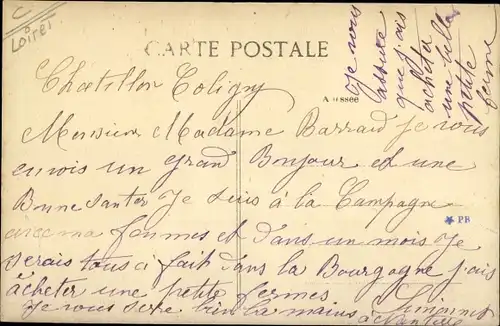 C
Loiret
CARTE POSTALE
Adressee
Je vous
assure
que j'ais
acheta
une
petite
ferme
Chatillon Coligny
Monsieur Madame Barraud Je vous
envois un Grand Bonjour et une
Bonne Santer Je suis à la Campagne
avec ma femmes et dans un mois Je
serais tous a fait dans la Bourgogne j'ais
àcheter une petite fermes
Je vous sere bien la mains
PB